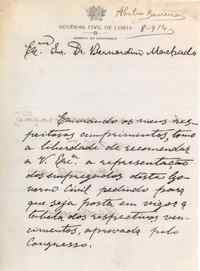 GOVERNO CIVIL DE LISBOA
8-914
Exmo Snr. Dr. Bernardino Machado
Enviando os meus res-
peitosos cumprimentos, tomo
a liberdade de recomendar
a V. Exa. a representação
dos empregados deste Go-
verno Civil pedindo para
que seja posta em vigor a
tabela dos respectivos ven-
cimentos, aprovada pelo
Congresso.